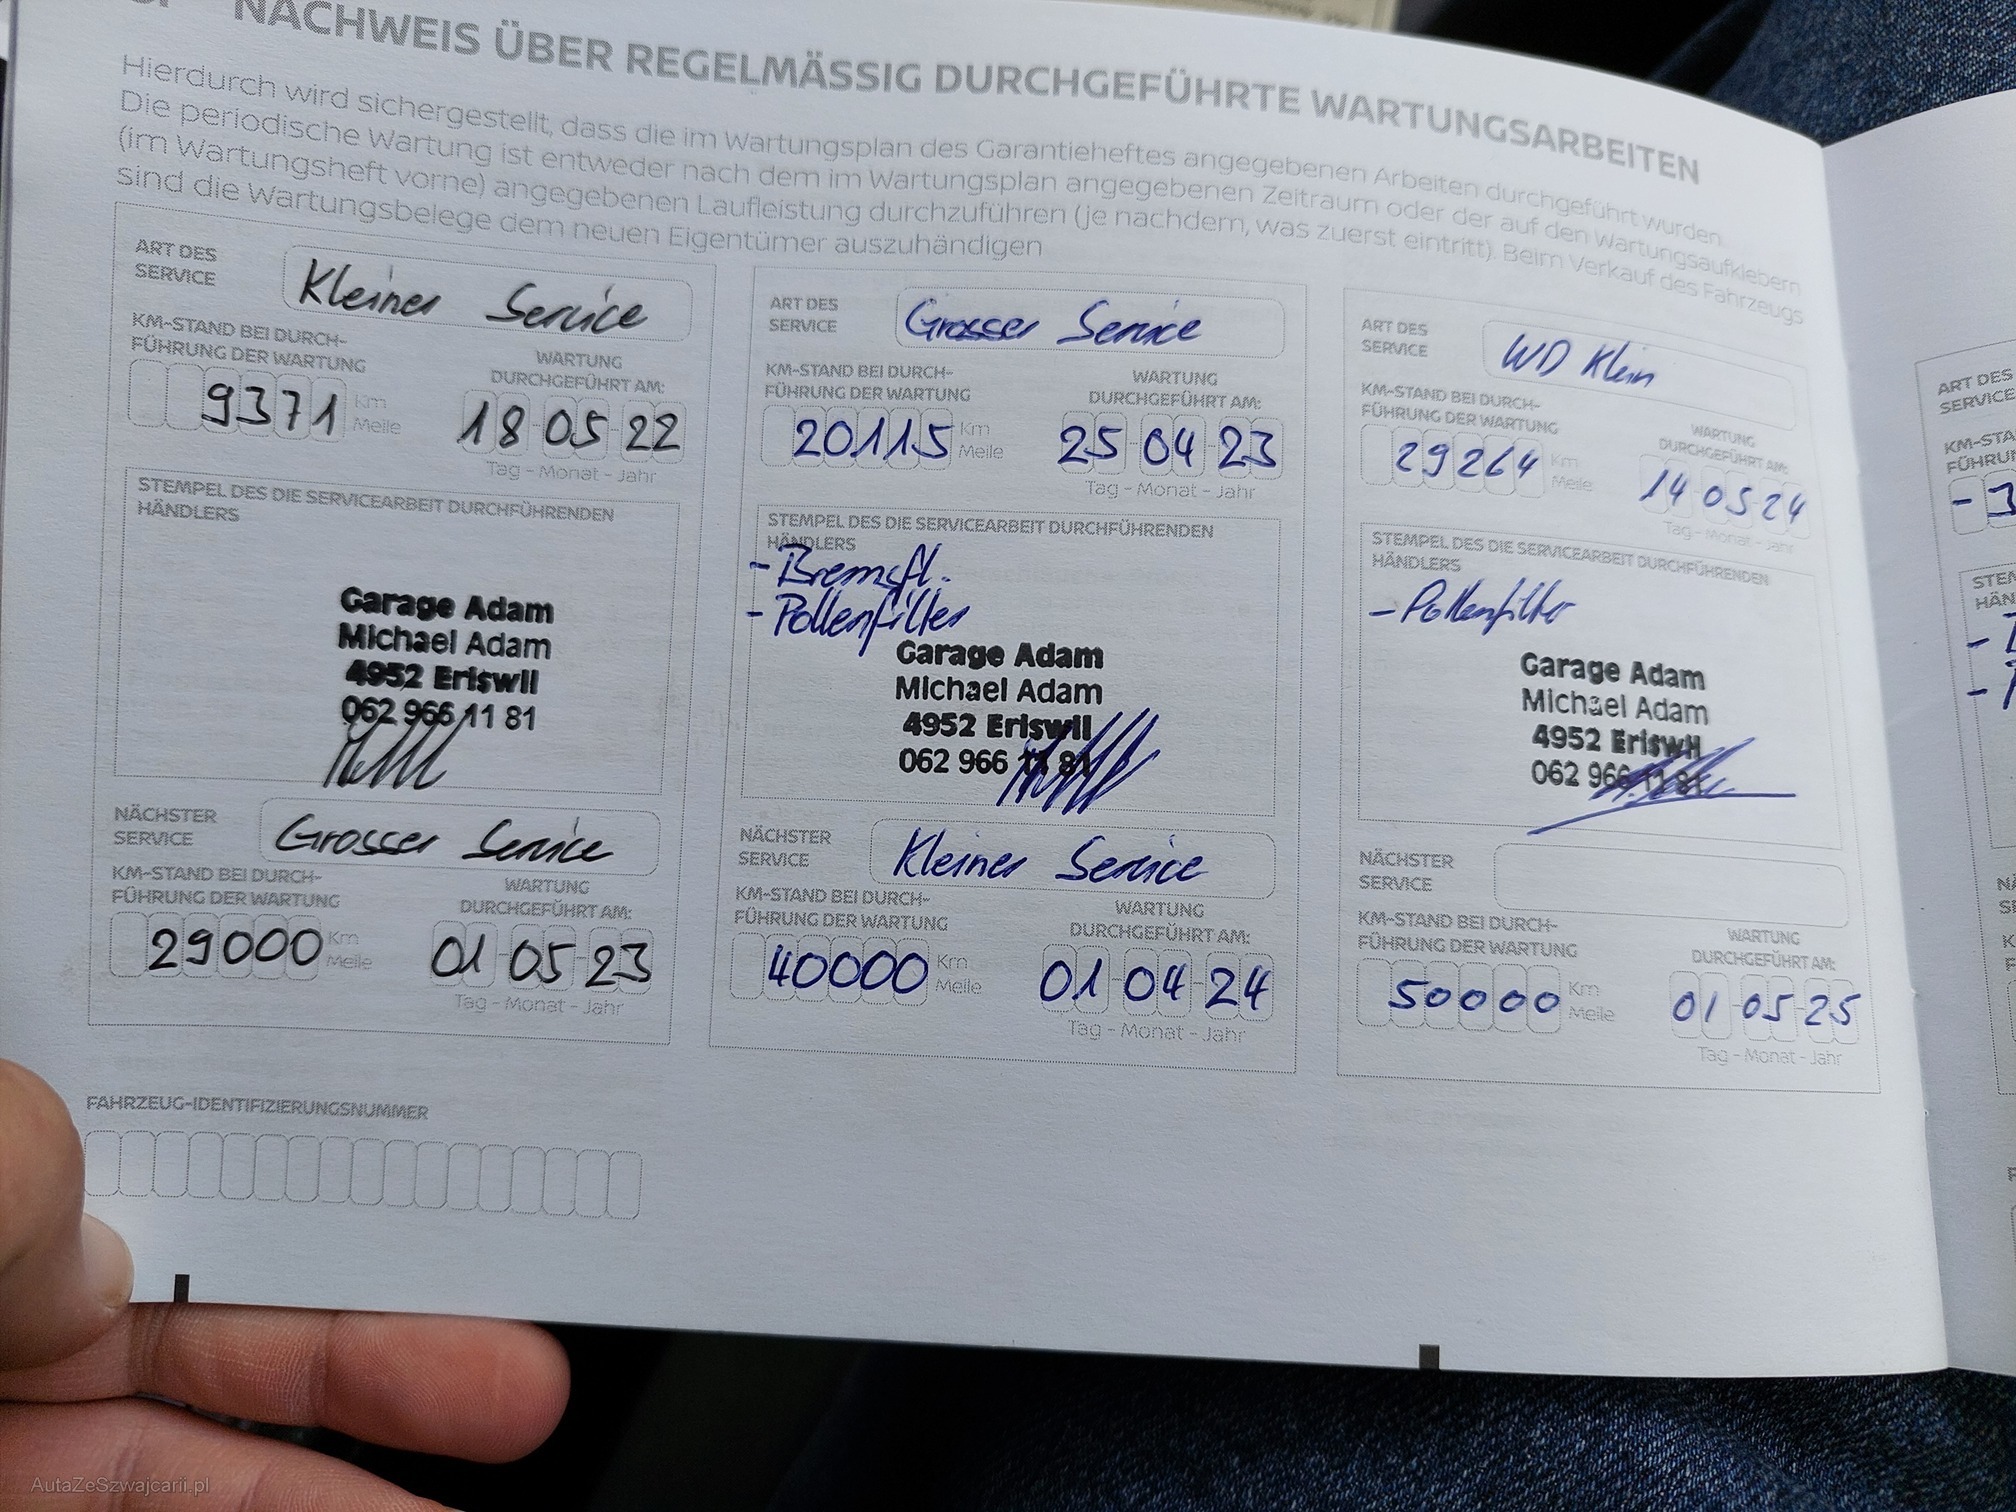 NACHWEIS ÜBER REGELMÄSSIG DURCHGEFÜHRTE WARTUNGSARBEITEN
Hierdurch wird sichergestellt, dass die im Wartungsplan des Garantieheftes angegebenen Arbeiten durchgeführt wurden.
Die periodische Wartung ist entweder nach dem im Wartungsplan angegebenen Zeitraum oder der auf den Wartungsaufklebern
(im Wartungsheft vorne) angegebenen Laufleistung durchzuführen (je nachdem, was zuerst eintritt). Beim Verkauf des Fahrzeugs
sind die Wartungsbelege dem neuen Eigentümer auszuhändigen
ART DES
SERVICE
Kleiner Service
KM-STAND BEI DURCH-
FÜHRUNG DER WARTUNG
WARTUNG
DURCHGEFÜHRT AM:
9371
Km
Meile
18 05 22
Tag - Monat - Jahr
STEMPEL DES DIE SERVICEARBEIT DURCHFÜHRENDEN
HÄNDLERS
Garage Adam
Michael Adam
4952 Eriswil
062 966 11 81
NÄCHSTER
SERVICE
Grosser Service
KM-STAND BEI DURCH-
FÜHRUNG DER WARTUNG
WARTUNG
DURCHGEFÜHRT AM:
29000
Km
Meile
01 05 23
Tag - Monat - Jahr
ART DES
SERVICE
Grosser Service
KM-STAND BEI DURCH-
FÜHRUNG DER WARTUNG
WARTUNG
DURCHGEFÜHRT AM:
20115
Km
Meile
25 04 23
Tag - Monat - Jahr
STEMPEL DES DIE SERVICEARBEIT DURCHFÜHRENDEN
HÄNDLERS
- Bremsfl.
- Pollenfilter
Garage Adam
Michael Adam
4952 Eriswil
062 966 11 81
NÄCHSTER
SERVICE
Kleiner Service
KM-STAND BEI DURCH-
FÜHRUNG DER WARTUNG
WARTUNG
DURCHGEFÜHRT AM:
40000
Km
Meile
01 04 24
Tag - Monat - Jahr
ART DES
SERVICE
WD Klein
KM-STAND BEI DURCH-
FÜHRUNG DER WARTUNG
WARTUNG
DURCHGEFÜHRT AM:
29264
Km
Meile
14 05 24
Tag - Monat - Jahr
STEMPEL DES DIE SERVICEARBEIT DURCHFÜHRENDEN
HÄNDLERS
- Pollenfilter
Garage Adam
Michael Adam
4952 Eriswil
062 966 11 81
NÄCHSTER
SERVICE
KM-STAND BEI DURCH-
FÜHRUNG DER WARTUNG
WARTUNG
DURCHGEFÜHRT AM:
50000
Km
Meile
01 05 25
Tag - Monat - Jahr
FAHRZEUG-IDENTIFIZIERUNGSNUMMER
ART DES
SERVICE
AutaZeSzwajcarii.pl